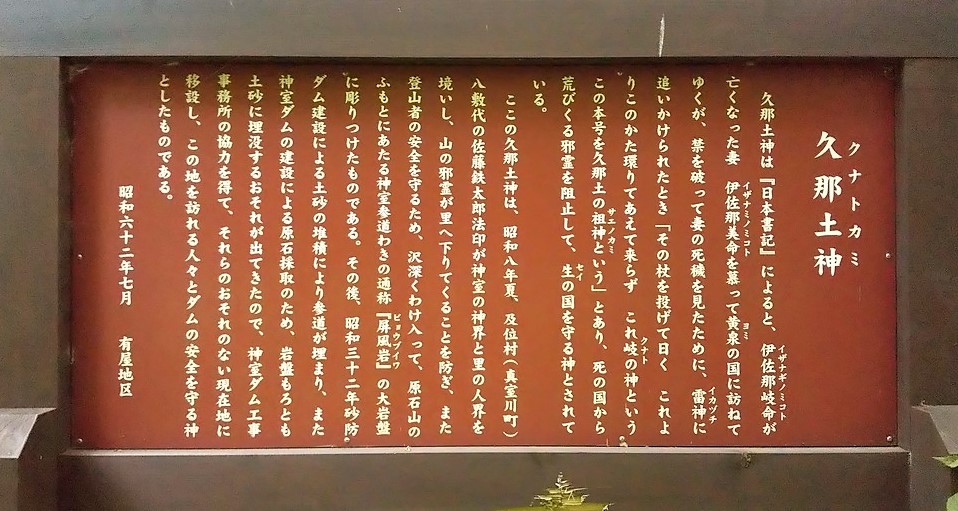 クナトカミ
久那土神
久那土神は『日本書記』によると、伊佐那岐命が
イザナギノミコト
亡くなった妻 伊佐那美命を慕って黄泉の国に訪ねて
イザナミノミコト
ヨミ
ゆくが、禁を破って妻の死穢を見たために、雷神に
イカツチ
追いかけられたとき「その杖を投げて曰く これよ
りこのかた環りてあえて来らず これ岐の神という
クナト
この本号を久那土の祖神という」とあり、死の国から
サエノカミ
荒びくる邪霊を阻止して、生の国を守る神とされて
セイ
いる。
ここの久那土神は、昭和八年夏、及位村(真室川町)
八敷代の佐藤鉄太郎法印が神室の神界と里の人界を
境いし、山の邪霊が里へ下りてくることを防ぎ、また
登山者の安全を守るため、沢深くわけ入って、原石山の
ふもとにあたる神室参道わきの通称『屏風岩』の大岩盤
ビョウブイワ
に彫りつけたものである。その後、昭和三十二年砂防
ダム建設による土砂の堆積により参道が埋まり、また
神室ダムの建設による原石採取のため、岩盤もろとも
土砂に埋没するおそれが出てきたので、神室ダム工事
事務所の協力を得て、それらのおそれのない現在地に
移設し、この地を訪れる人々とダムの安全を守る神
としたものである。
昭和六十二年七月 有屋地区